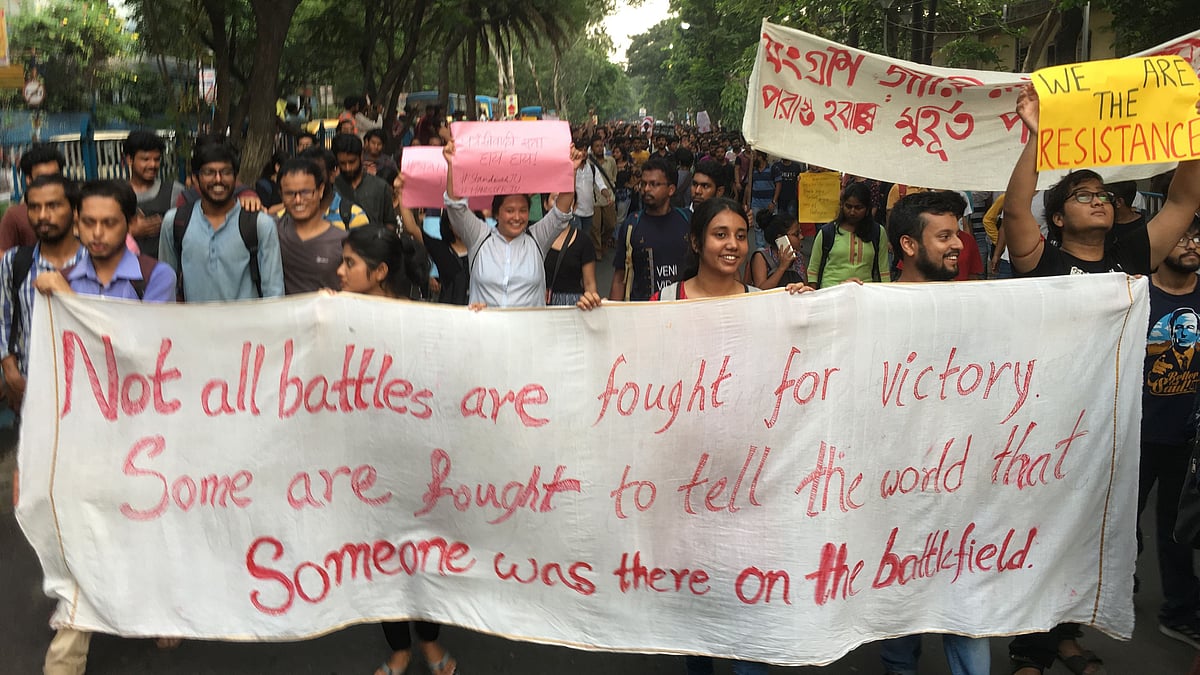 সংগ্রাম
পরাস্ত হবার মুহূর্ত
WE ARE
THE
RESISTANCE
হায় হায়!
VENI
Not all battles are fought for victory.
Some are fought to tell the world that
Someone was there on the battlefield.